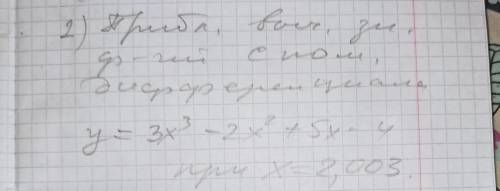 2) Прибл. выч. зн.
ф-ций с пом.
дифференциала
y = 3x³ - 2x² + 5x - 4
при x = 2,003.